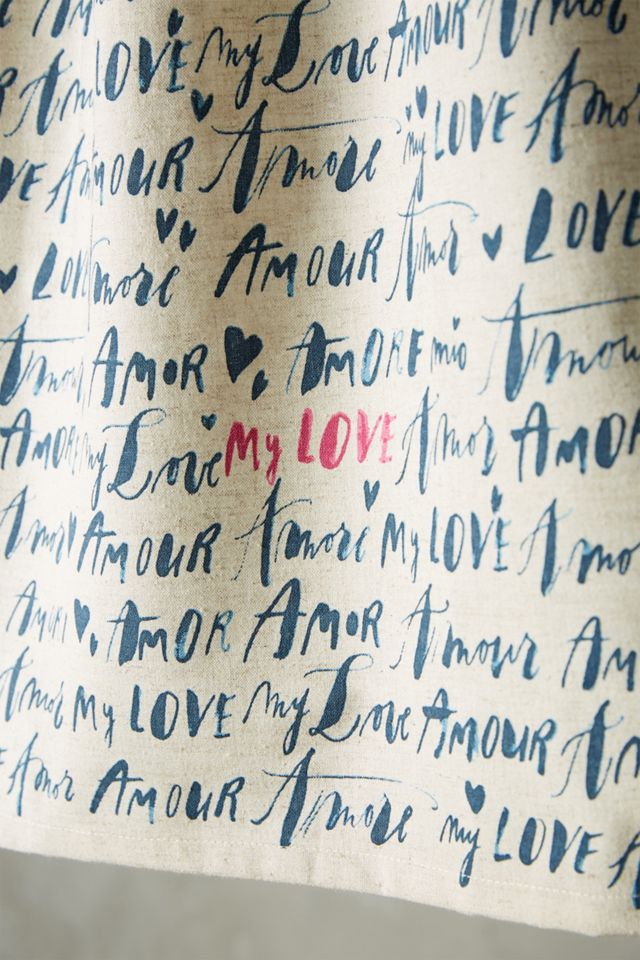 LOVE my Love AMOUR
Amor AMOUR Amore my LOVE Amor
LOVE Amore AMOUR Amor LOVE
Amour AMOR AMORE mio Amour
AMORE my Love My LOVE Amor AMOR
Amor AMOUR Amore My LOVE Amo
AMORE AMOR AMOR Amour AM
Amor My LOVE my Love AMOUR
Amor AMOUR Amore my LOVE